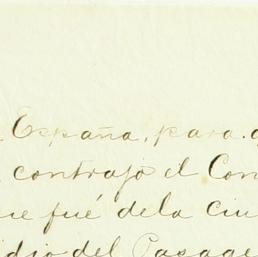 España, para
contrajo el Con
ue fué dela ciu
idio del Pasage